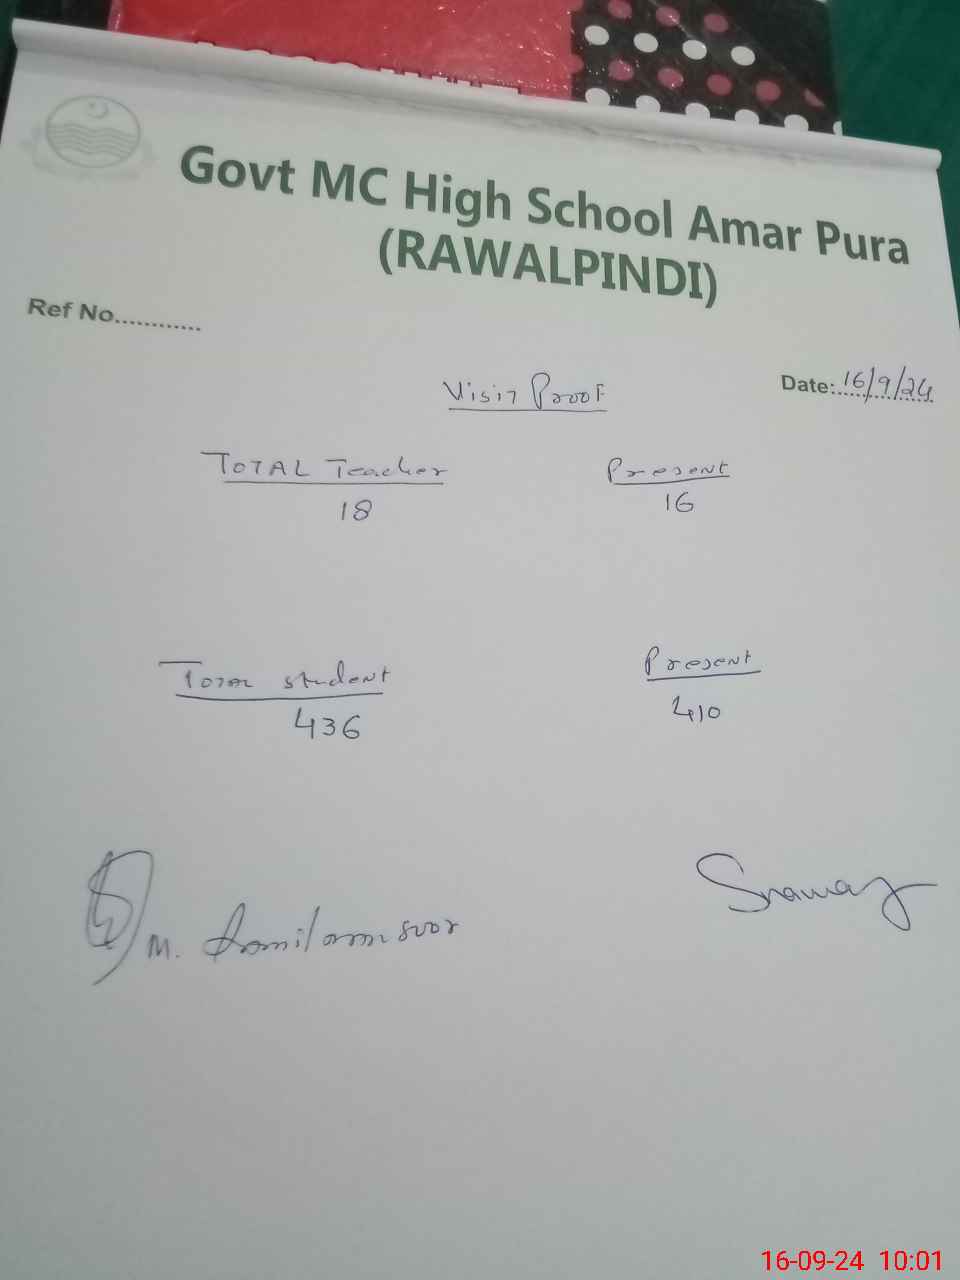 Govt MC High School Amar Pura
(RAWALPINDI)
Ref No............
Date:16/9/24
Visit Proof
TOTAL Teacher Present
18 16
Total student Present
436 410
M.
16-09-24 10:01